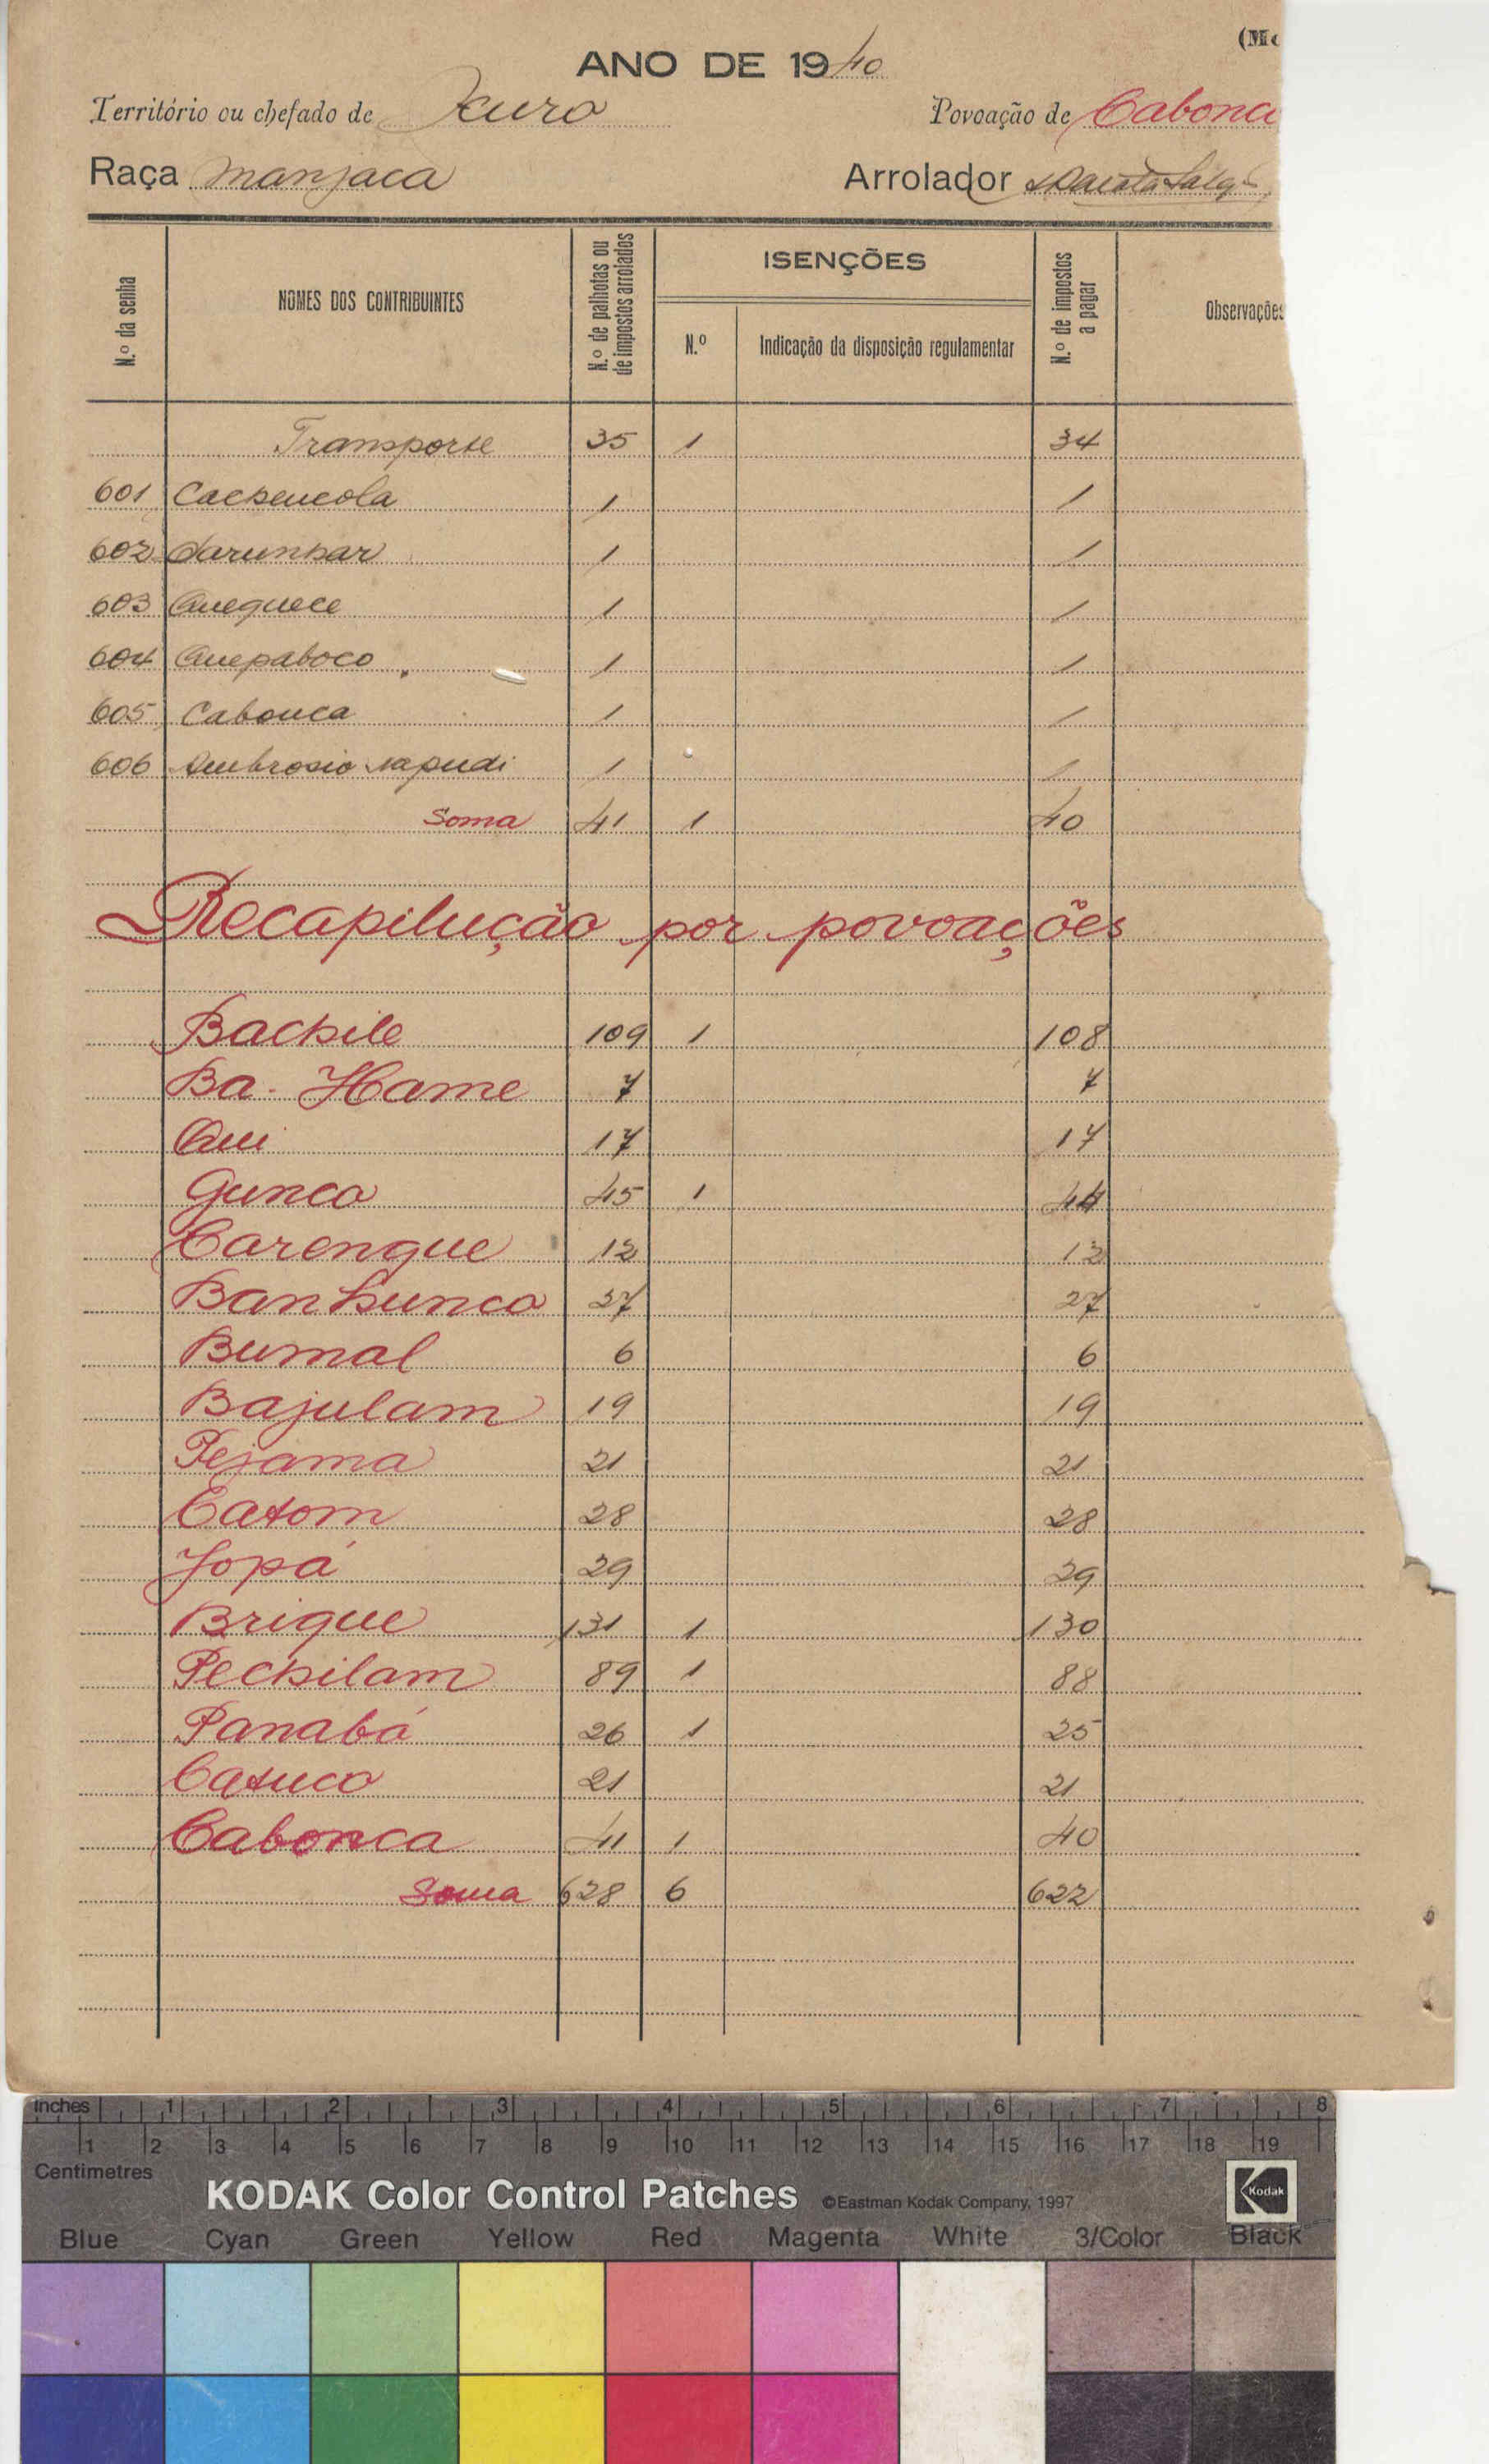 (Mo
ANO DE 1940
Território ou chefado de Xuro Povoação de Cabonca
Raça manjaca Arrolador
N.º da senha NOMES DOS CONTRIBUINTES N.º de palhotas ou de impostos arrolados ISENÇÕES N.º Indicação da disposição regulamentar N.º de impostos a pagar Observações
Transporte 35 1 34
601 Cacheucola 1 1
602 Sarunhar 1 1
603 Quequece 1 1
604 Quepaboco 1 1
605 Cabouca 1 1
606 Ambrosio Napudi 1 1
Soma 41 1 40
Recapilução por povoações
Bachile 109 1 108
Ba-Hame 7 7
Qui 17 17
Gunco 45 1 44
Carenque 12 12
Banhunco 27 27
Bumal 6 6
Bajulam 19 19
Pejama 21 21
Catom 28 28
Jopá 29 29
Brique 131 1 130
Pechilam 89 1 88
Panabá 26 1 25
Catuco 21 21
Cabonca 41 1 40
Soma 628 6 622
inches 1 2 3 4 5 6 7 8
1 2 3 4 5 6 7 8 9 10 11 12 13 14 15 16 17 18 19
Centimetres
KODAK Color Control Patches ©Eastman Kodak Company, 1997 Kodak
Blue Cyan Green Yellow Red Magenta White 3/Color Black